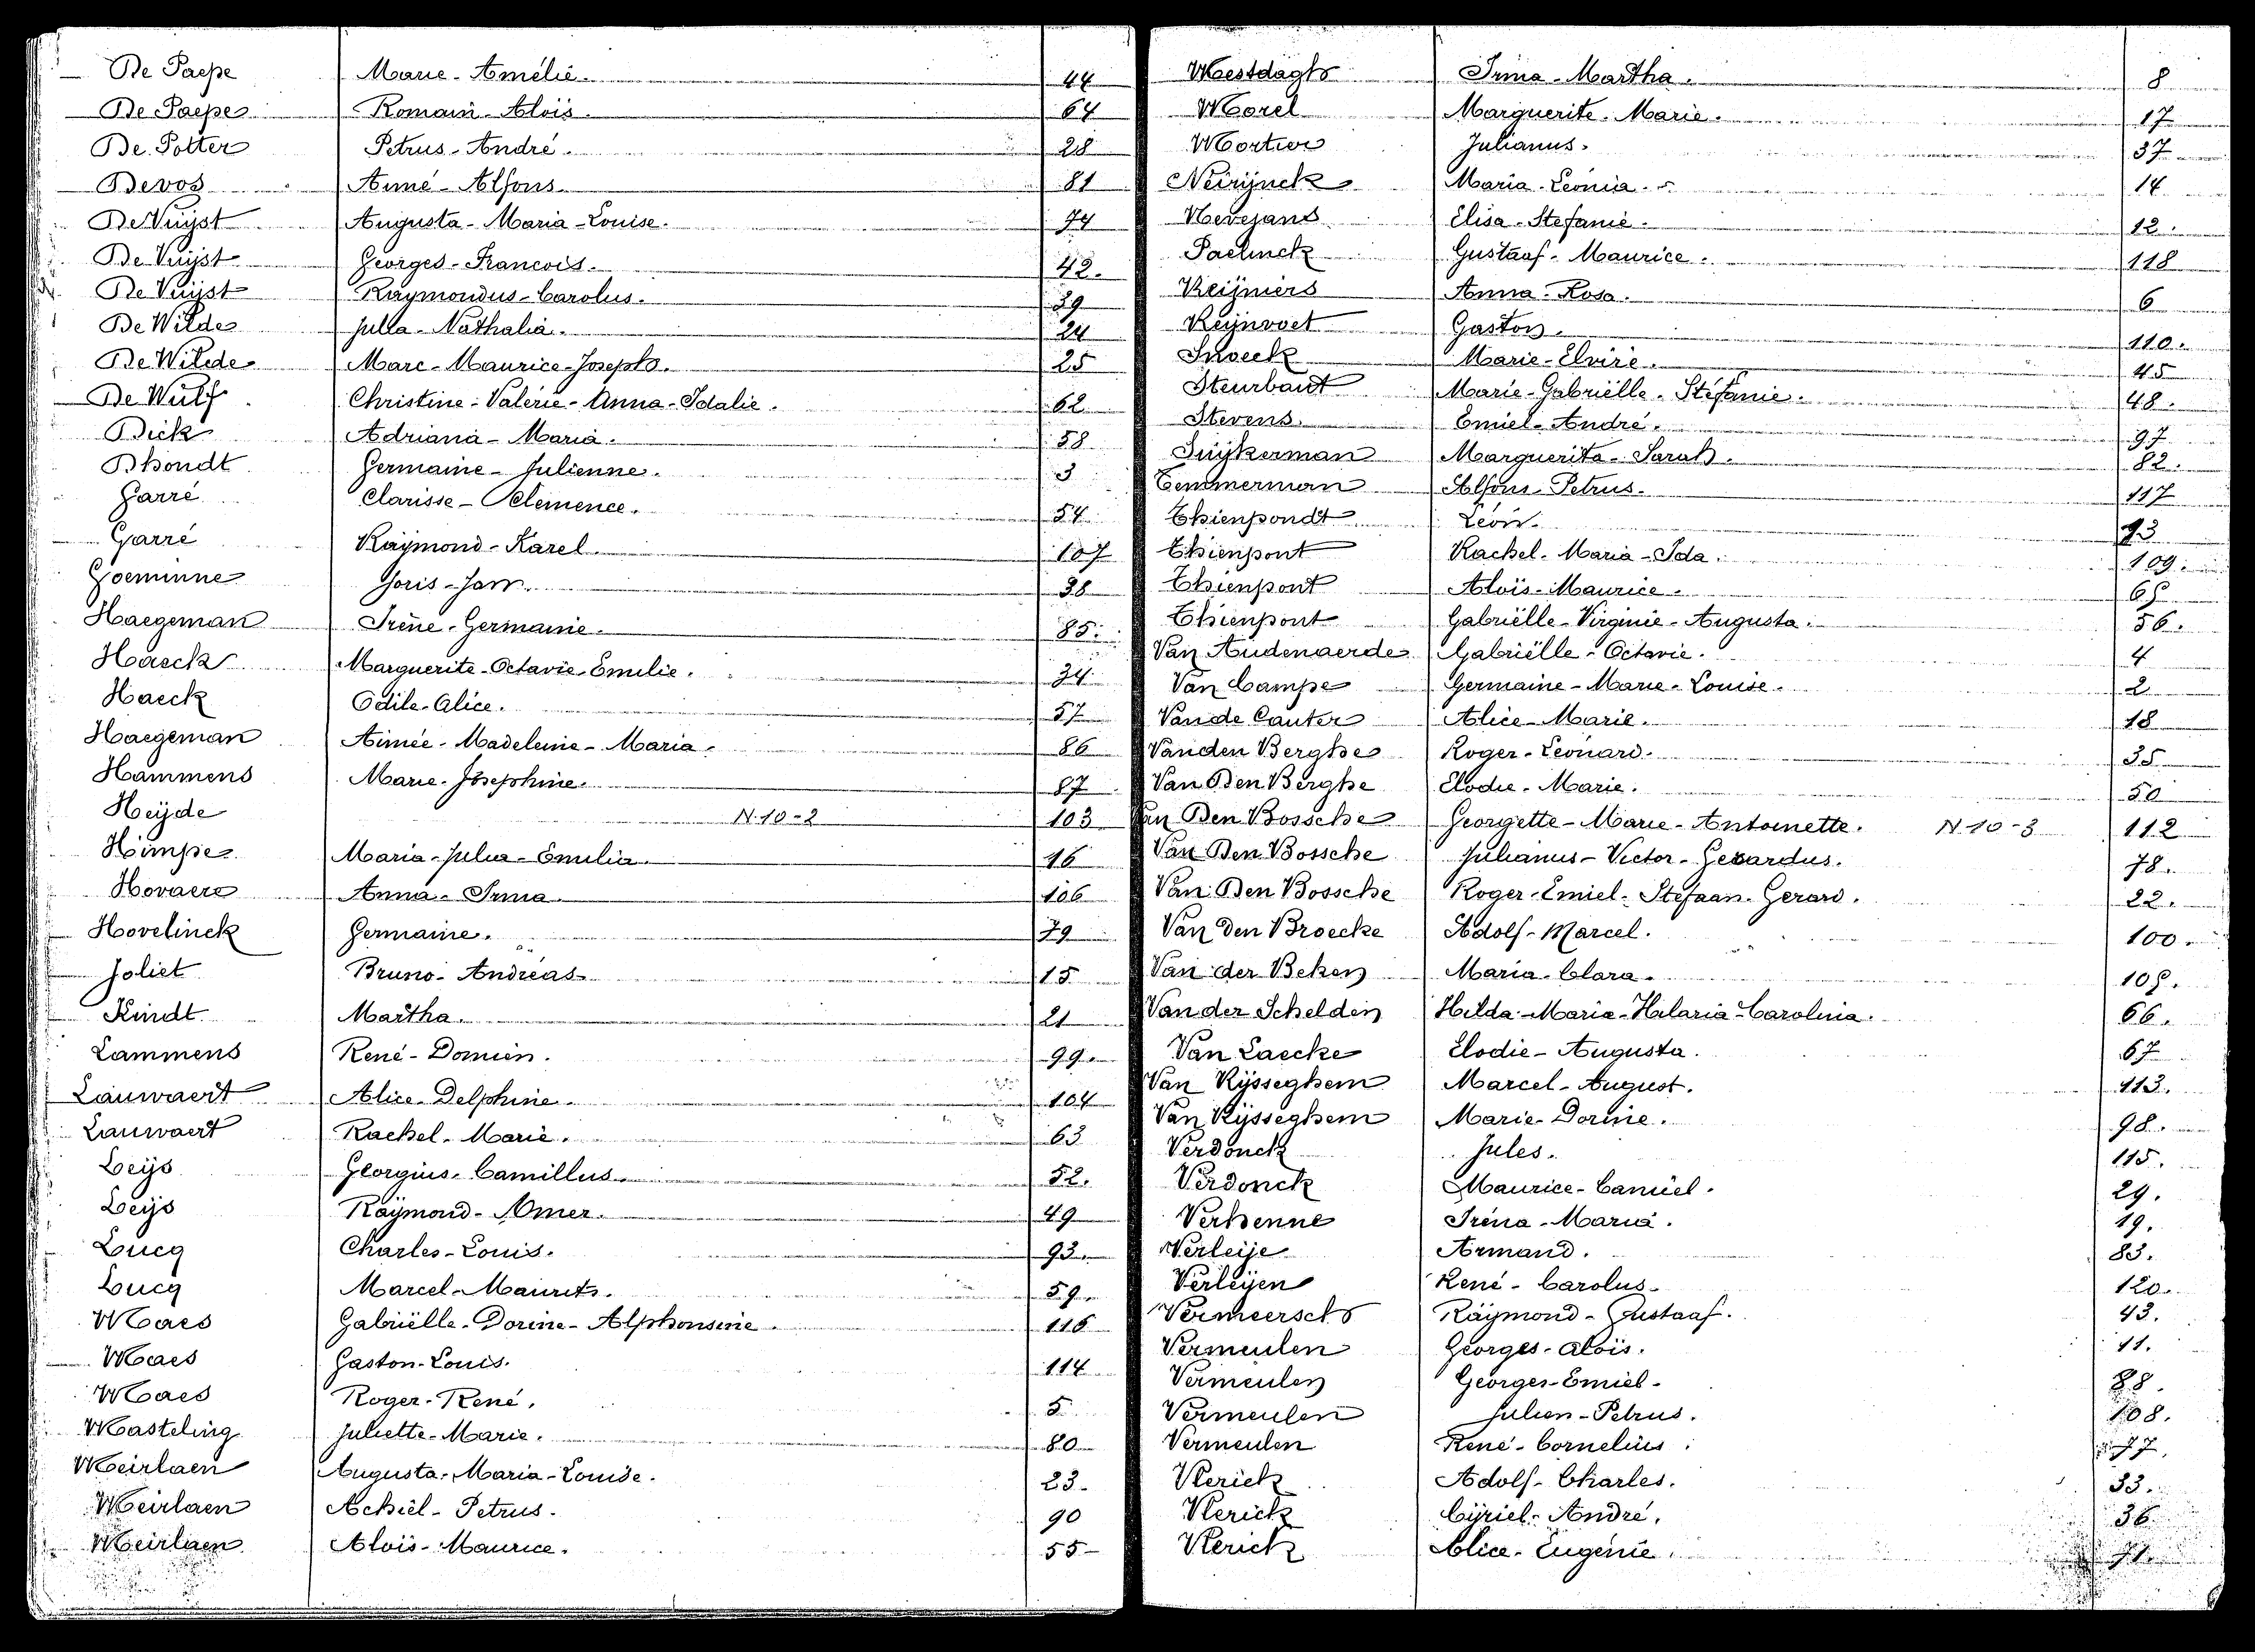 De Paepe Marie-Amelie. 44
De Paepe Romain-Alois. 64
De Potter Petrus-André. 28
Devos Anné-Alfons. 81
De Vuÿst Augusta-Maria-Louise. 74
De Vuÿst Georges-Francois. 42.
De Vuÿst Raymondus-Carolus. 39
De Wilde Julia-Nathalia. 24
De Wilde Marc-Maurice-Joseph. 25
De Wulf Christine-Valérie-Anna-Idalie. 62
Dick Adriana-Maria. 58
Dhondt Germaine-Julienne. 3
Garré Clarisse-Clemence. 54
Garré Raÿmond-Karel. 107
Goeminne Joris-Jan. 38
Haegeman Irène-Germaine. 85.
Haeck Marguerite-Octavie-Emilie. 34
Haeck Odile-Alice. 57
Haegeman Aimée-Madeleine-Maria. 86
Hammens Marie-Josephine. 87
Heÿde N.10-2 103
Himpe Maria-Julia-Emilia. 16
Hovaere Anna-Irma. 106
Hovelinck Germaine. 79
Joliet Bruno-Andréas. 15
Kindt Martha. 21
Lammens René-Domien. 99.
Lauwaert Alice-Delphine. 104
Lauwaert Rachel-Marie. 63
Leÿs Georgius-Camillus. 52.
Leÿs Raÿmond-Omer. 49
Lucq Charles-Louis. 93.
Lucq Marcel-Maurits. 59.
Maes Gabriëlle-Dorine-Alphonsine. 116
Maes Gaston-Louis. 114
Maes Roger-René. 5
Masteling Juliette-Marie. 80
Meirlaen Augusta-Maria-Louise. 23.
Meirlaen Achiel-Petrus. 90
Meirlaen Aloïs-Maurice. 55-
Mestdagh Irma-Martha. 8
Morel Marguerite-Marie. 17
Mortier Julianus. 37
Neirÿnck Maria-Leonia. 14
Nevejans Elisa-Stefanie. 12.
Paelinck Gustaaf-Maurice. 118
Reÿniers Anna-Rosa. 6
Reÿnvoet Gaston. 110.
Snoeck Marie-Elvire. 45
Steurbaut Marie-Gabriëlle-Stéfanie. 48.
Stevens. Emiel-André. 97
Suÿkerman Marguerita-Sarah. 82.
Temmerman Alfons-Petrus. 117
Thienpondt Léon. 73
Thienpont Rachel-Maria-Ida. 109.
Thienpont Aloïs-Maurice. 65
Thienpont Gabriëlle-Virginie-Augusta. 56.
Van Audenaerde Gabriëlle-Octavie. 4
Van Campe Germaine-Marie-Louise. 2
Van de Cauter Alice-Marie. 18
Vanden Berghe Roger-Leonard. 35
Van Den Berghe Elodie-Marie. 50
Van Den Bossche Georgette-Marie-Antoinette. N 10-3 112
Van Den Bossche Julianus-Victor-Gerardus. 78.
Van Den Bossche Roger-Emiel-Stefaan-Gerard. 22.
Van Den Broecke Adolf-Marcel. 100.
Van der Beken Maria-Clara. 105.
Van der Schelden Hilda-Maria-Hilaria-Carolina. 66.
Van Laecke Elodie-Augusta. 67
Van Rÿsseghem Marcel-August. 113.
Van Rÿsseghem Marie-Dorine. 98.
Verdonck Jules. 115.
Verdonck Maurice-Camiel. 29.
Verhenne Iréna-Maria. 19.
Verleÿe Armand. 83.
Verleÿen René-Carolus. 120.
Vermeersch Raÿmond-Gustaaf. 43.
Vermeulen Georges-Aloïs. 11.
Vermeulen Georges-Emiel- 88.
Vermeulen Julien-Petrus. 108.
Vermeulen René-Cornelius. 77.
Vlerick Adolf-Charles. 33.
Vlerick Cÿriel-André. 36
Vlerick Alice-Eugénie. 71.